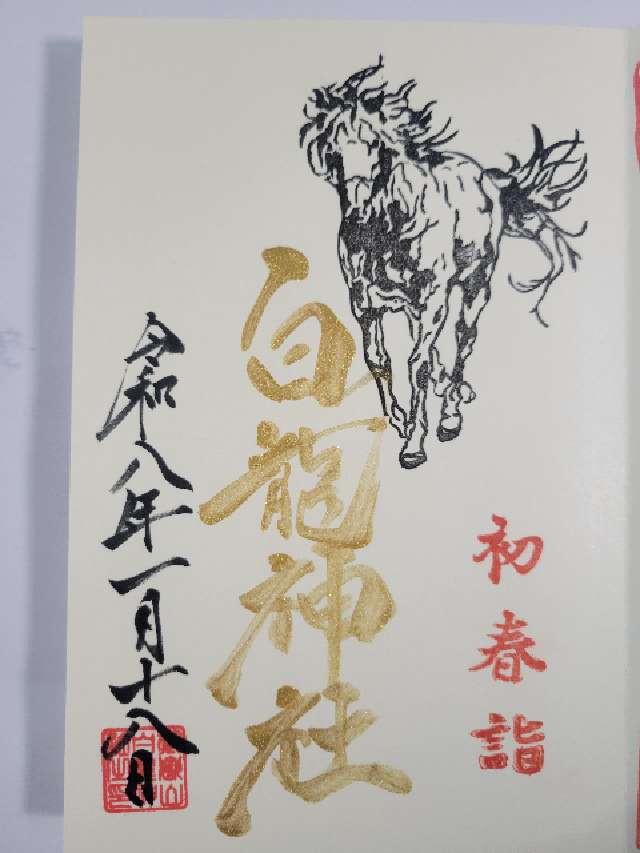 初春詣
白龍神社
令和八年一月十八日